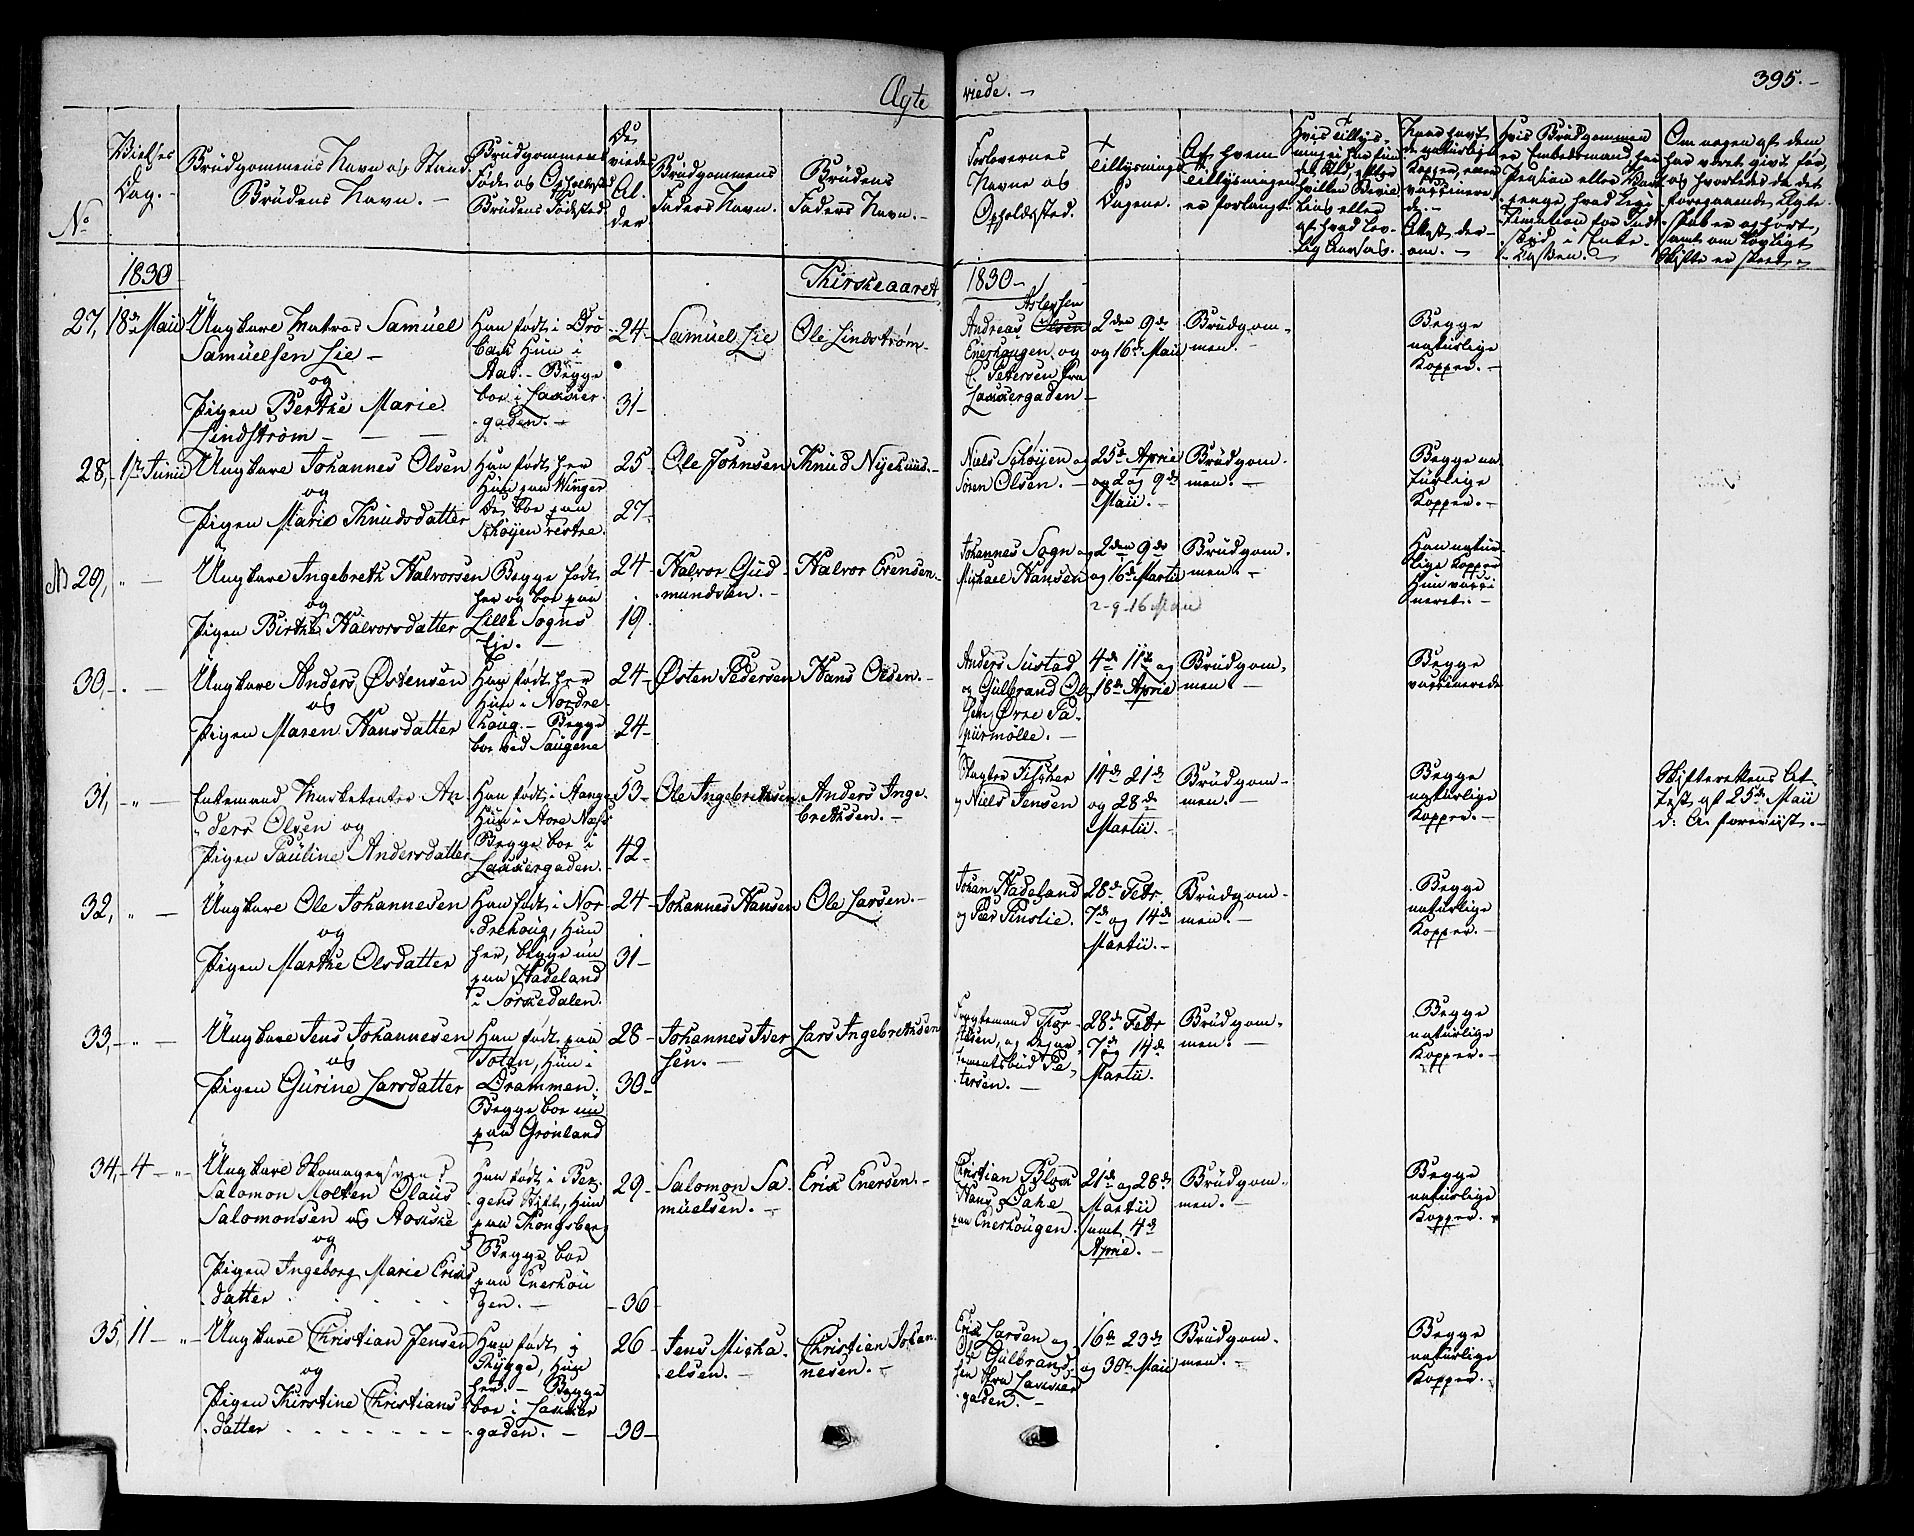 Ægte viede. 395.
No
Vielses Dag.
Brudgommens Navn og Stand
Brudens Navn.
Brudgommens Føde og Opholdssted
Brudens Fødested
De viedes Alder
Brudgommens Faders Navn.
Brudens Faders Navn.
Forlovernes Navne og Opholdssted.
Tillysnings Dagene.
Af hvem Tillysningen er forlangt.
1830 Kirkeaaret 1830
27, 18de Maii Ungkarl Matros Samuel
Samuelsen Lie
og
Pigen Berthe Marie
Lindstrøm
Han født i Drø
bach Hun i
Aas. Begge
boe i Lakker
gaden.
24
31
Samuel Lie
Ole Lindstrøm
Aslepsen
Andreas Olsen
Enerhougen og
C. Petersen fra
Lakkergaden
2den 9de
og 16de Maii
Brudgom
men.
Begge
naturlige
Kopper.
28, 1ste Junii Ungkarl Johannes Olsen
og
Pigen Marie Knudsdatter
Han født her
Hun paa Winger
De boe paa
Schøyen vestre.
25
27
Ole Johnsen
Knud Nyehuus.
Niels Schøyen og
Søren Olsen.
25de Aprie
og 2 og 9de
Maii.
Brudgom
men.
Begge na
turlige
Kopper.
NB 29, Ungkarl Ingebreth Halvorsen
og
Pigen Birthe Halvorsdatter
Begge født
her og boe paa
Lille Sogns
Eje.
24
19.
Halvor Gud
mundsen.
Halvor Evensen
Johannes Sogn og
Michael Hansen
2den 9de
og 16de Martii
2-9-16 Maii
Brudgom
men.
Han natur
lige Kopper
Hun vacci
neret.
30, Ungkarl Anders Østensen
og
Pigen Maren Hansdatter
Han født her
Hun i Nordre
houg. Begge
boe ved Saugene
24
24
Østen Pedersen
Hans Olsen.
Anders Sustad
og Gulbrand Ol
sen Øvre Pa
piirmølle.
4de 11te og
18de Aprie
Brudgom
men.
Begge
vaccinerede
31, Enkemand Marketenter An
ders Olsen og
Pigen Pauline Andersdatter
Begge boe i
Lakkergaden.
53
42
Ole Ingebrethsen
Anders Inge
brethsen.
Slagter Fischer
og Niels Jensen
14de 21de
og 28de
Martii.
Brudgom
men.
Begge
naturlige
Kopper.
Skifterettens At
test af 25de Maii
d. A. foreviist.
32, Ungkarl Ole Johannesen
og
Pigen Marthe Olsdatter
Han født i Nor
drehoug, Hun
her, begge nu
paa Hadeland
i Sørkedalen.
24
31
Johannes Hansen
Ole Larsen.
Johan Hadeland
28de Febr
7de og 14de
Martii.
Brudgom
men.
Begge
naturlige
Kopper.
33, Ungkarl Jens Johannesen
og
Pigen Gurine Larsdatter
Han født paa
Toten, Hun i
Drammen.
Begge boe nu
paa Grønland
28
30
Johannes Iver
sen.
Lars Ingebrethsen
28de Febr
7de og 14de
Martii.
Brudgom
men.
Begge
naturlige
Kopper.
34, 4 Ungkarl Skomagersvend
Salomon Molten Olaus
Salomonsen
og
Pigen Ingeborg Marie Erichs
datter
Han født i Ber
gens Stift, Hun
paa Kongsberg
Begge boe
paa Enerhou
gen.
29
36
Salomon Sa
muelsen.
Erik Enersen.
Christian Block
Hans Dahl
paa Enerhougen.
21de og 28de
Martii
samt 4de
Aprie.
Brudgom
men.
Begge
naturlige
Kopper.
35, 11 Ungkarl Christian Jensen
og
Pigen Kirstine Christians
datter
Han født i
Rygge, Hun
her. Begge
boe i Lakker
gaden.
26
30
Jens Micha
elsen.
Christian Johan
nesen.
Erik Larsen og
Ole Gulbrand
sen fra Lakker
gaden.
16de 23de
og 30te Maii
Brudgom
men.
Begge
naturlige
Kopper.